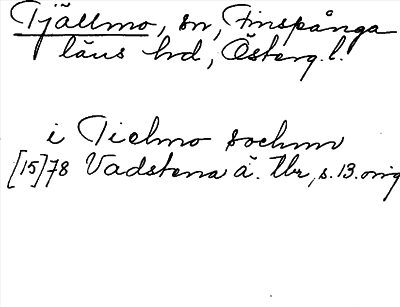 Tjällmo, sn, Finspånga
läns hd, Österg. l.
i Tielmo sochnn
[15]78 Vadstena ä. Jbr, s. 13. orig